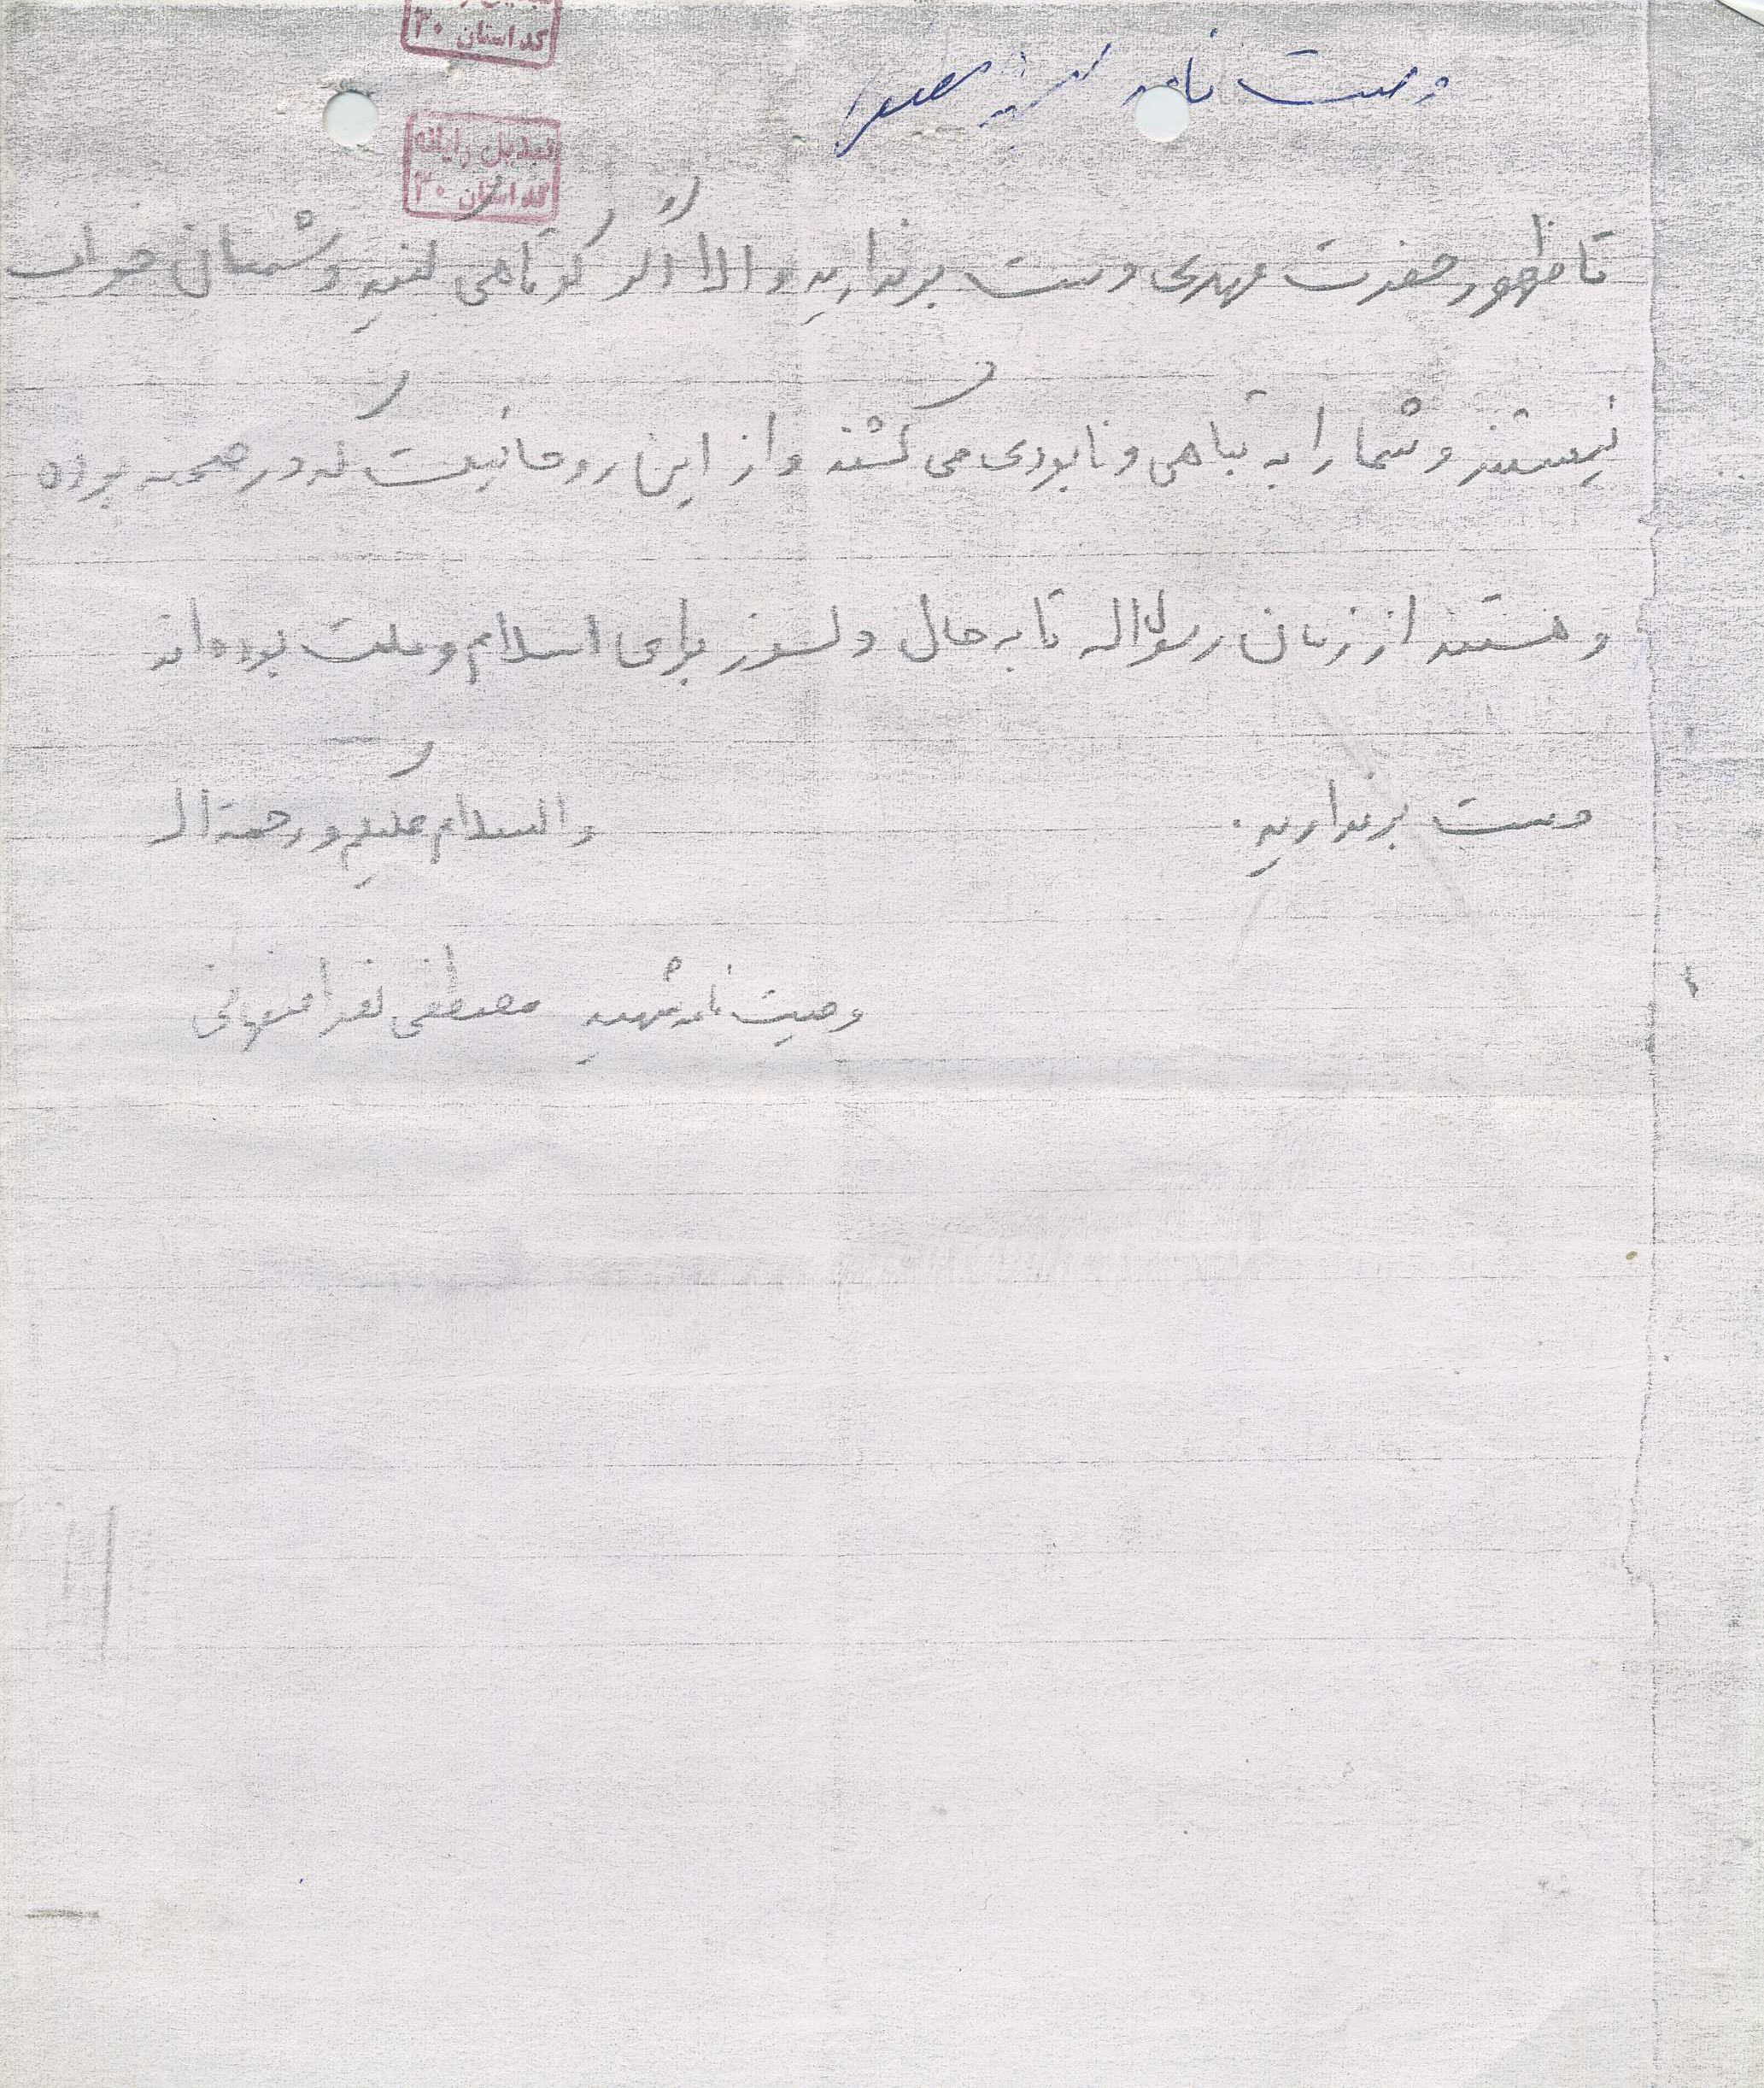 کد استان ۳۰
وصیت نامه
تبدیل رایانه
کد استان ۳۰
تا ظهور حضرت مهدی دست برندارید و الا اگر کوتاهی کنید دشمنان خواب
نیستند و شما را به تباهی و نابودی می کشند و از این روحانیت که در صحنه بوده
و هستند از زمان رسول اله تا به حال دلسوز برای اسلام و ملت بوده اند
دست برندارید. والسلام علیکم و رحمة ال
وصیت نامه شهید مصطفی